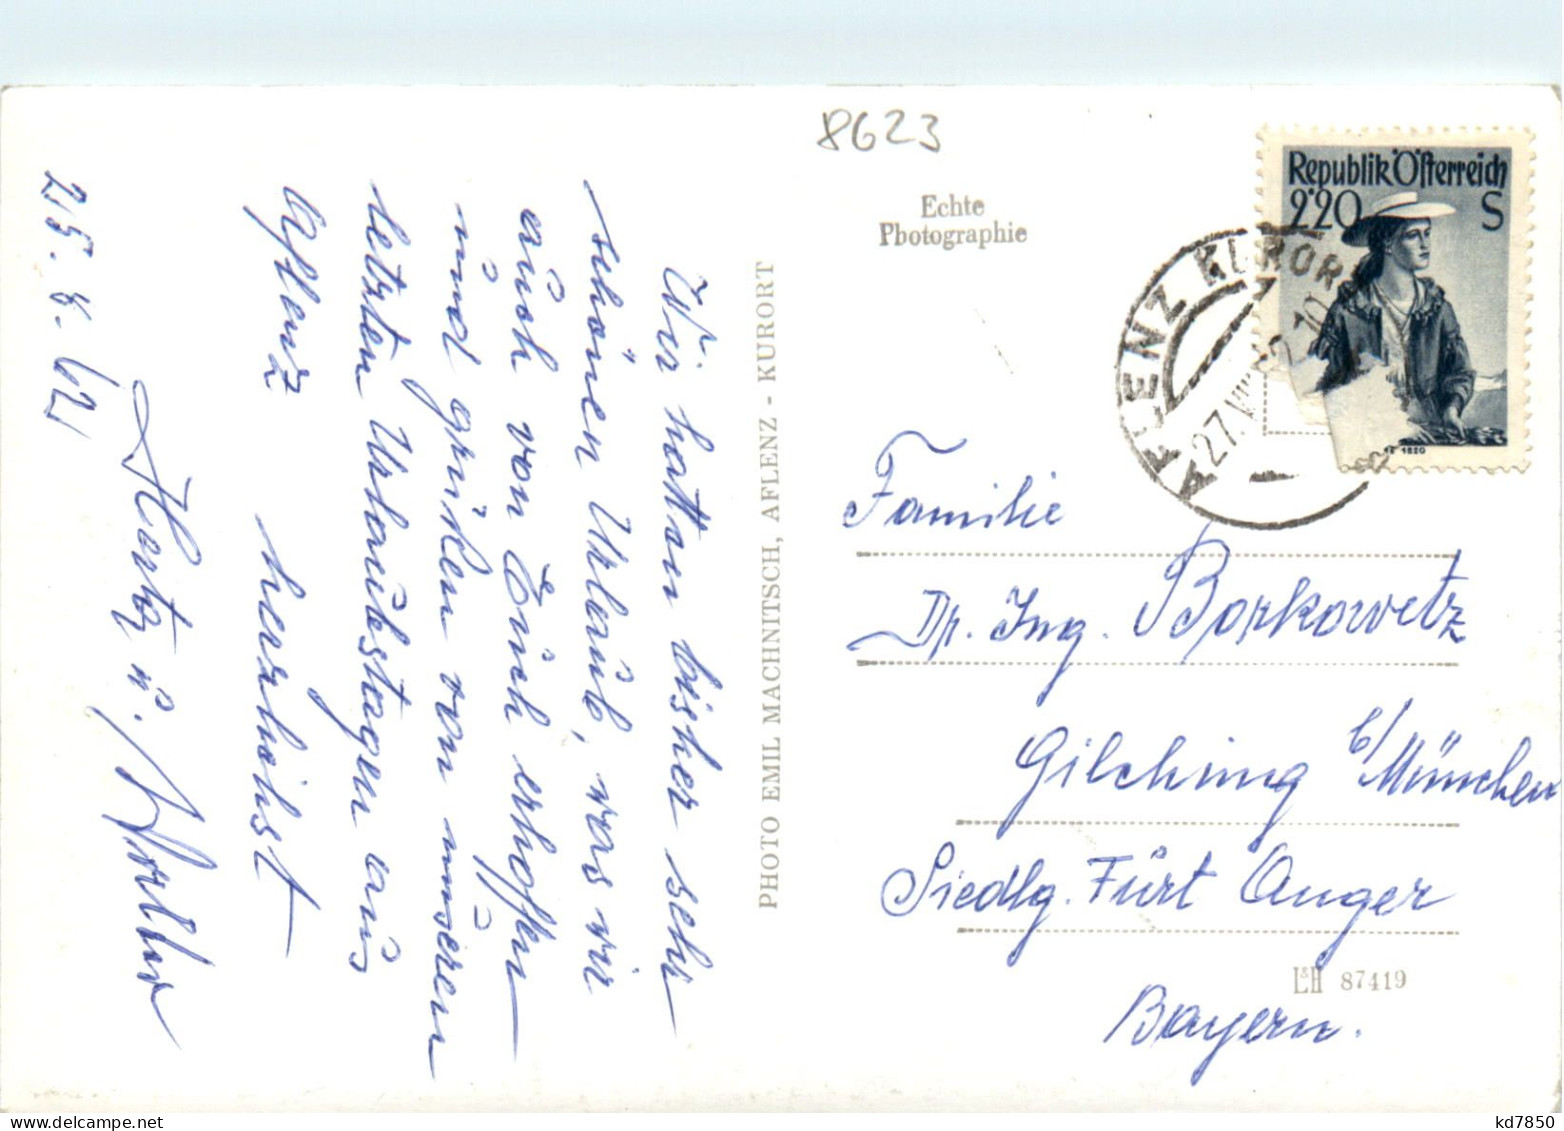 8623
Echte
Photographie
Republik Österreich
2.20 S
1820
AFLENZ KUROR
27.VIII
25. 8. 62
Wir hatten bisher sehr
schönen Urlaub, was wir
auch von Euch erhoffen
und grüßen von unseren
letzten Urlaubstagen aus
Aflenz herzlichst
u.
PHOTO EMIL MACHNITSCH, AFLENZ - KURORT
Familie
Dr. Ing. Borkowetz
Gilching b/München
Siedlg. Fürt Anger
L&H 87419
Bayern.
kd7850